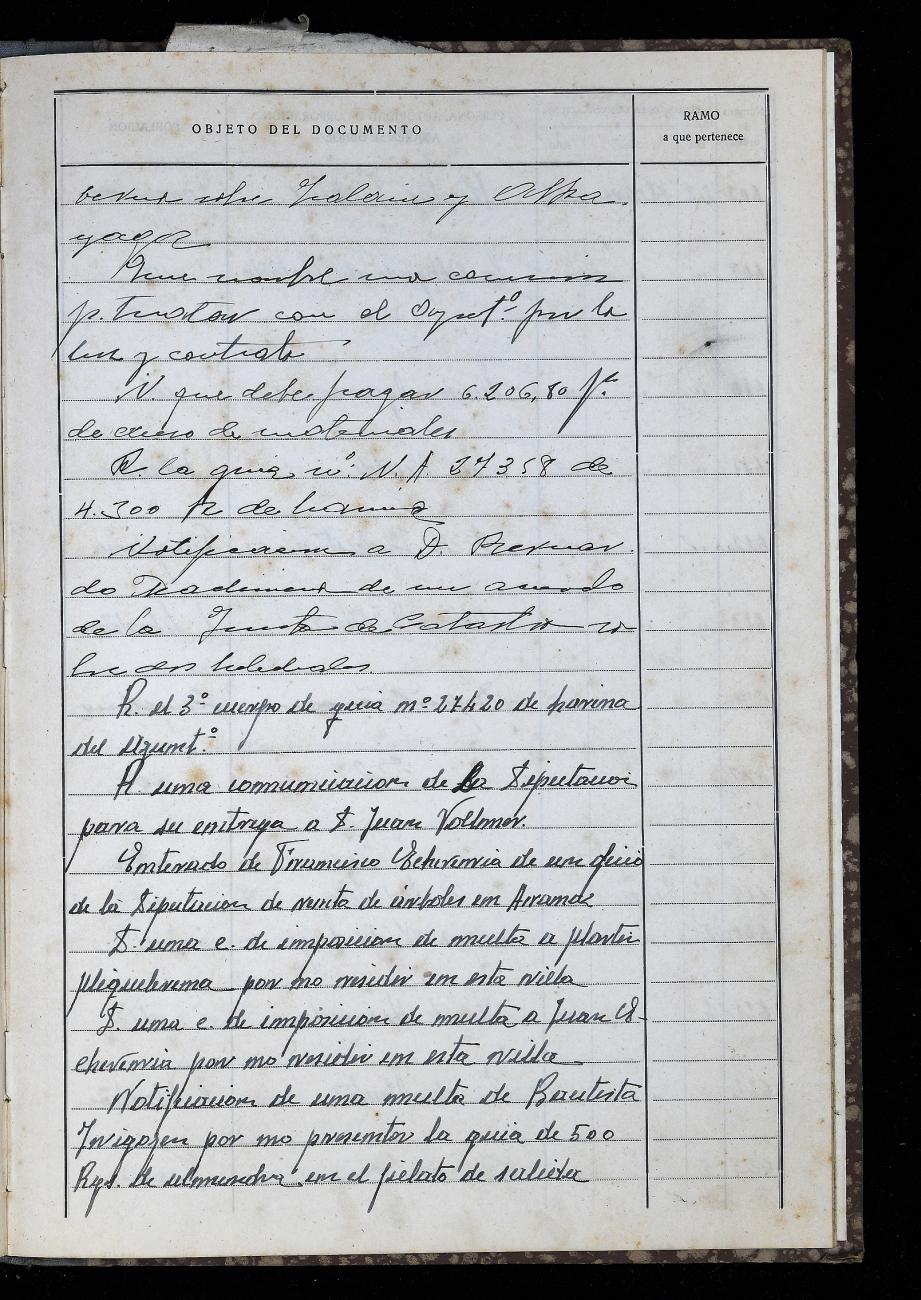 OBJETO DEL DOCUMENTO
RAMO
a que pertenece
sobre y
yaga
Que nombre una comision
p. tratar con el Ayuntº por la
luz y contrato
N. que debe pagar 6.206,80 pts.
de exceso de materiales
R. la guia nº N.A. 27358 de
4.300 K de harina
Notificacion a D. Bernar
do de un acuerdo
de la Junta de Catastro so
bre dos
R. el 3º cuerpo de guia nº 27420 de harina
del Ayuntº
R una comunicacion de la Diputacion
para su entrega a D Juan Vollmer.
Enterado de Francisco Echeverria de un oficio
de la Diputacion de venta de árboles en
D. una c. de imposicion de multa a Martin
Miguelerena por no residir en esta villa
D. una c. de imposicion de multa a Juan E-
cheverria por no residir en esta villa
Notificacion de una multa de Bautista
Irigoyen por no presentar la guia de 500
Kgs. de en el fielato de salida